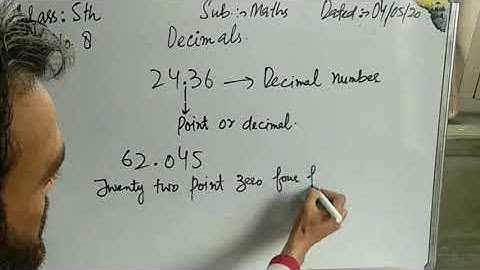 Class: 5th Sub:- Maths Dated:- 04/05/20
No. 8 Decimals.
24.36 → Decimal number
Point or decimal.
62.045
Twenty two point zero four f